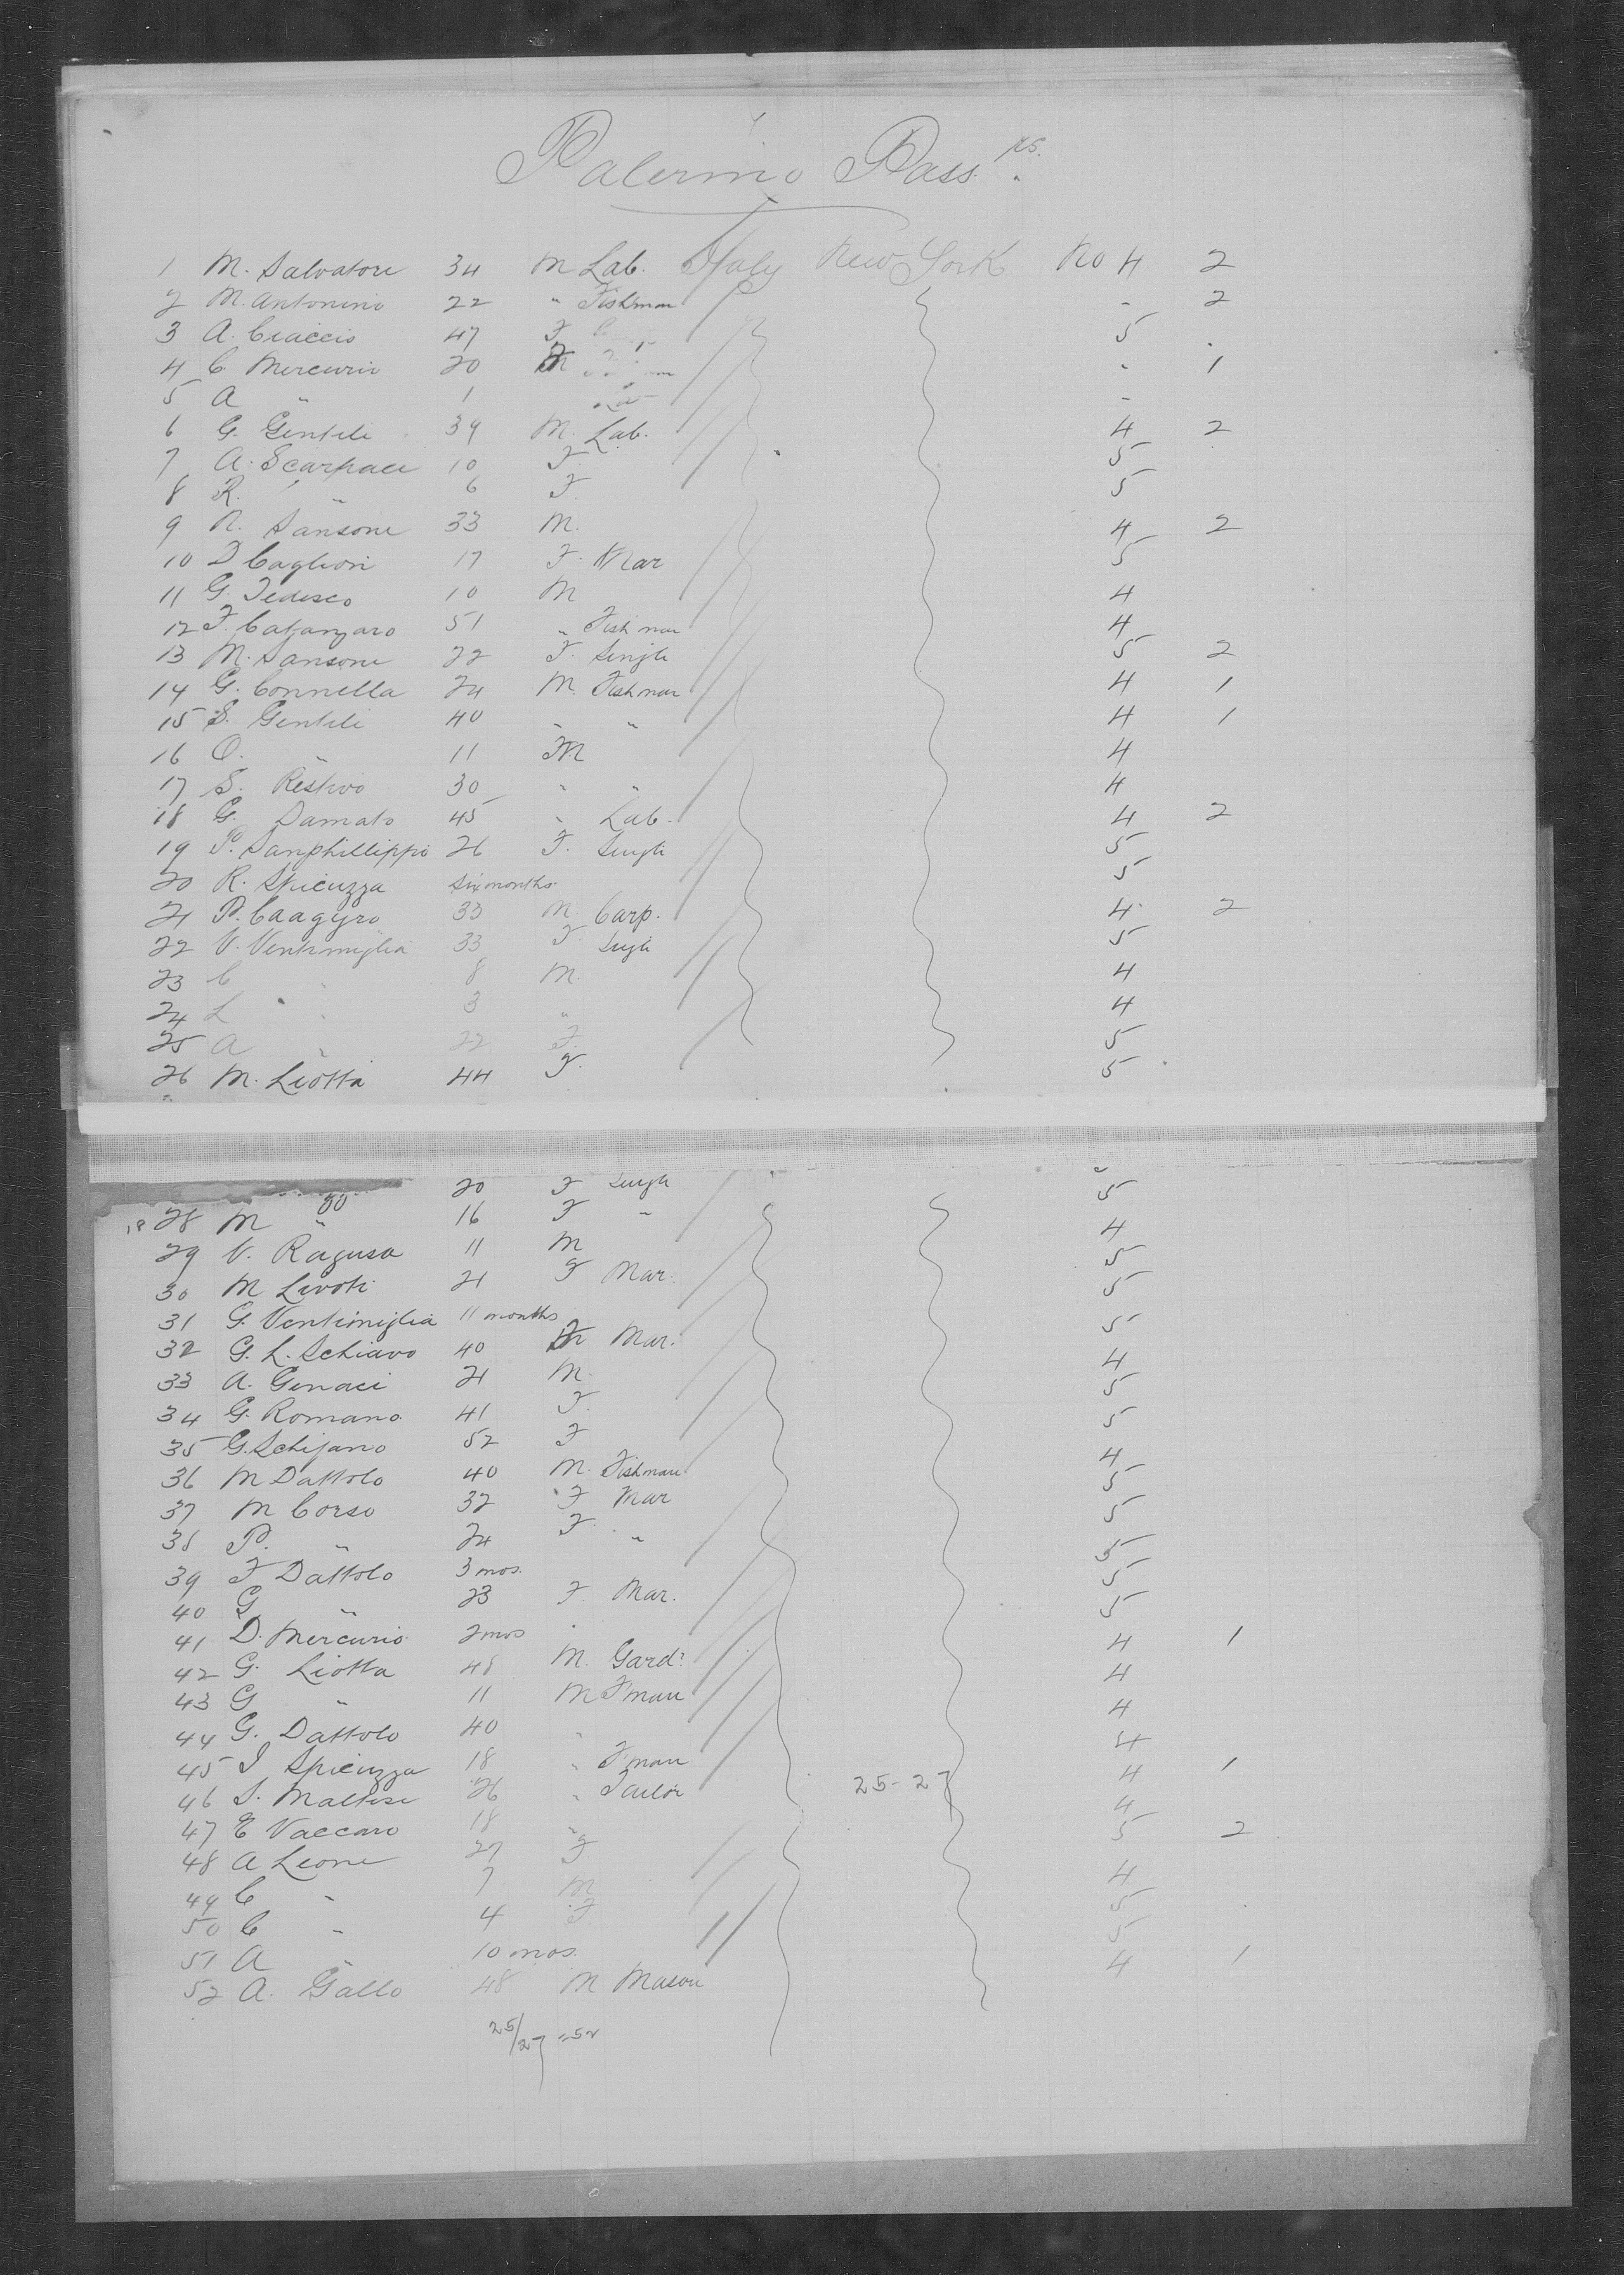 Palermo Pass.rs.
1 M. Salvatore 34 M Lab. Italy New York No 4 2
2 M. Antonino 22 " Fishman - 2
3 A. Ciaccio 47 F 5
4 C. Mercurio 20 1
5 A " 1
6 G. Gentile 39 M. Lab. 4 2
7 A. Scarpace 10 F. 5
8 R. " 6 F. 5
9 N. Sansone 33 M. 4 2
10 D Caglion 17 F. Mar 5
11 G. Tedesco 10 M 4
12 F. Catanzaro 51 " Fishman 4
13 M. Sansone 22 F. Single 5 2
14 G. Connella 24 M. Fishman 4 1
15 S. Gentile 40 " " 4 1
16 O. " 11 M 4
17 S. Restivo 30 " " 4
18 G. Damato 45 " Lab. 4 2
19 P. Sanphillippo 26 F. Single 5
20 R. Spicuzza Six months 5
21 P. Caagyro 33 M. Carp. 4 2
22 V. Ventimiglia 33 F. Single 5
23 C " 8 M. 4
24 L " 3 " 4
25 A " 22 F. 5
26 M. Liotta 44 F. 5
20 F Single 5
28 M " 16 F " 4
29 V. Ragusa 11 M 5
30 M Livoti 21 F Mar. 5
31 G. Ventimiglia 11 months 5
32 G. L. Schiavo 40 Mar. 4
33 A. Genaci 21 M. 5
34 G. Romano 41 F. 5
35 G. Schifano 52 F 4
36 M Dattolo 40 M. Fishman 5
37 M Corso 32 F Mar 5
38 P. " 24 F. " 5
39 F Dattolo 3 mos. 5
40 G " 23 F. Mar. 5
41 D. Mercurio 2 mos 4 1
42 G. Liotta 48 M. Gard. 4
43 G " 11 M F'man 4
44 G. Dattolo 40 " 4
45 I Spicuzza 18 " F'man 4 1
46 S. Maltese 26 " Tailor 25-27 4
47 E Vaccaro 18 " 5 2
48 A Leone 27 F 4
49 C " 7 M 5
50 C " 4 F 5
51 A " 10 mos. 4 1
52 A. Gallo 48 M Mason
25/27 = 52